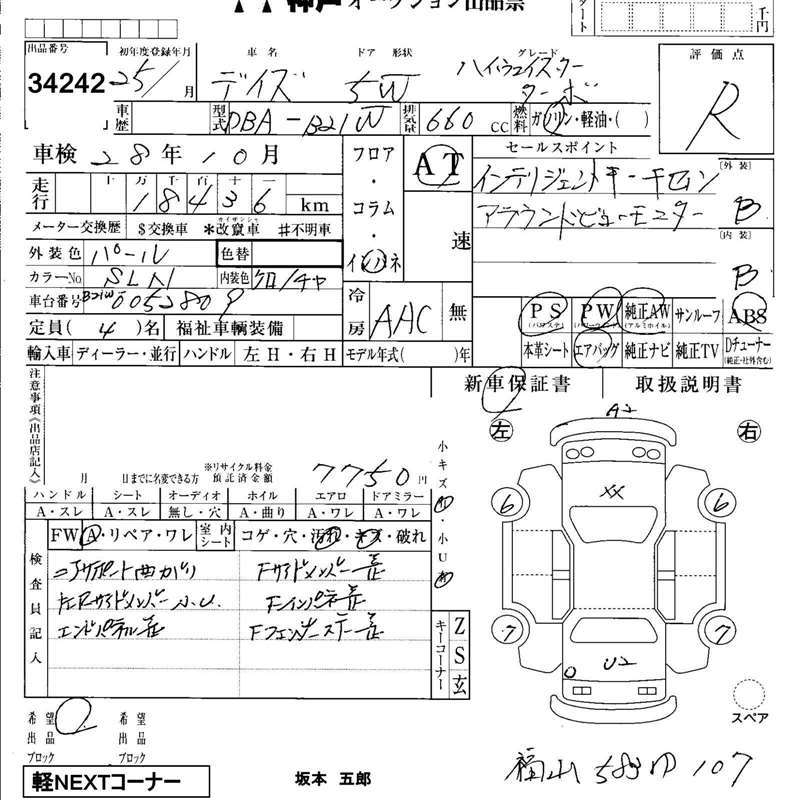 神戸オークション出品票
千円
出品番号 初年度登録年月 車名 ドア 形状 グレード 評価点
34242 25/ 月 デイズ 5W ハイウェイスター ターボ R
車歴 型式 DBA-B21W 排気量 660 CC 燃料 ガソリン・軽油・( )
車検 28年10月 フロア・コラム・インパネ AT 速 セールスポイント
走行 十 万 千 百 十 一 18436 km インテリジェントキー [外装] B
メーター交換歴 $交換車 *改竄車 #不明車 アラウンドビューモニター
カイザンシャ
外装色 パール 色替 [内装] B
カラーNo SLN 内装色 クロ/チャ
車台番号 B21W 0052809 冷房 AAC 無
PS (パワステ) PW (パワーウィンド) 純正AW (アルミホイル) サンルーフ ABS
定員 (4)名 福祉車輌装備
本革シート エアバッグ 純正ナビ 純正TV Dチューナー (純正・社外含む)
輸入車 ディーラー・並行 ハンドル 左H・右H モデル年式( )年
新車保証書 取扱説明書
注意事項《出品店記入》
月 日までに名変できる方 ※リサイクル料金 預託済金額 7750円
ハンドル シート オーディオ ホイル エアロ ドアミラー
A・スレ A・スレ 無し・穴 A・曲り A・ワレ A・ワレ
FW A・リペア・ワレ 室内シート コゲ・穴・汚れ・キズ・破れ
小キズ・小U
検査員記入
コアサポート曲がり Fサイドメンバー歪
左Rサイドメンバー小U. Fインパネ歪
エンドパネル歪 Fフェンダーステー歪
キーコーナー Z S 玄
左 A2 右
XX
6 6
7 7
U2
スペア
希望出品ブロック 希望出品ブロック
軽NEXTコーナー 坂本 五郎 福山 583 ゆ 107